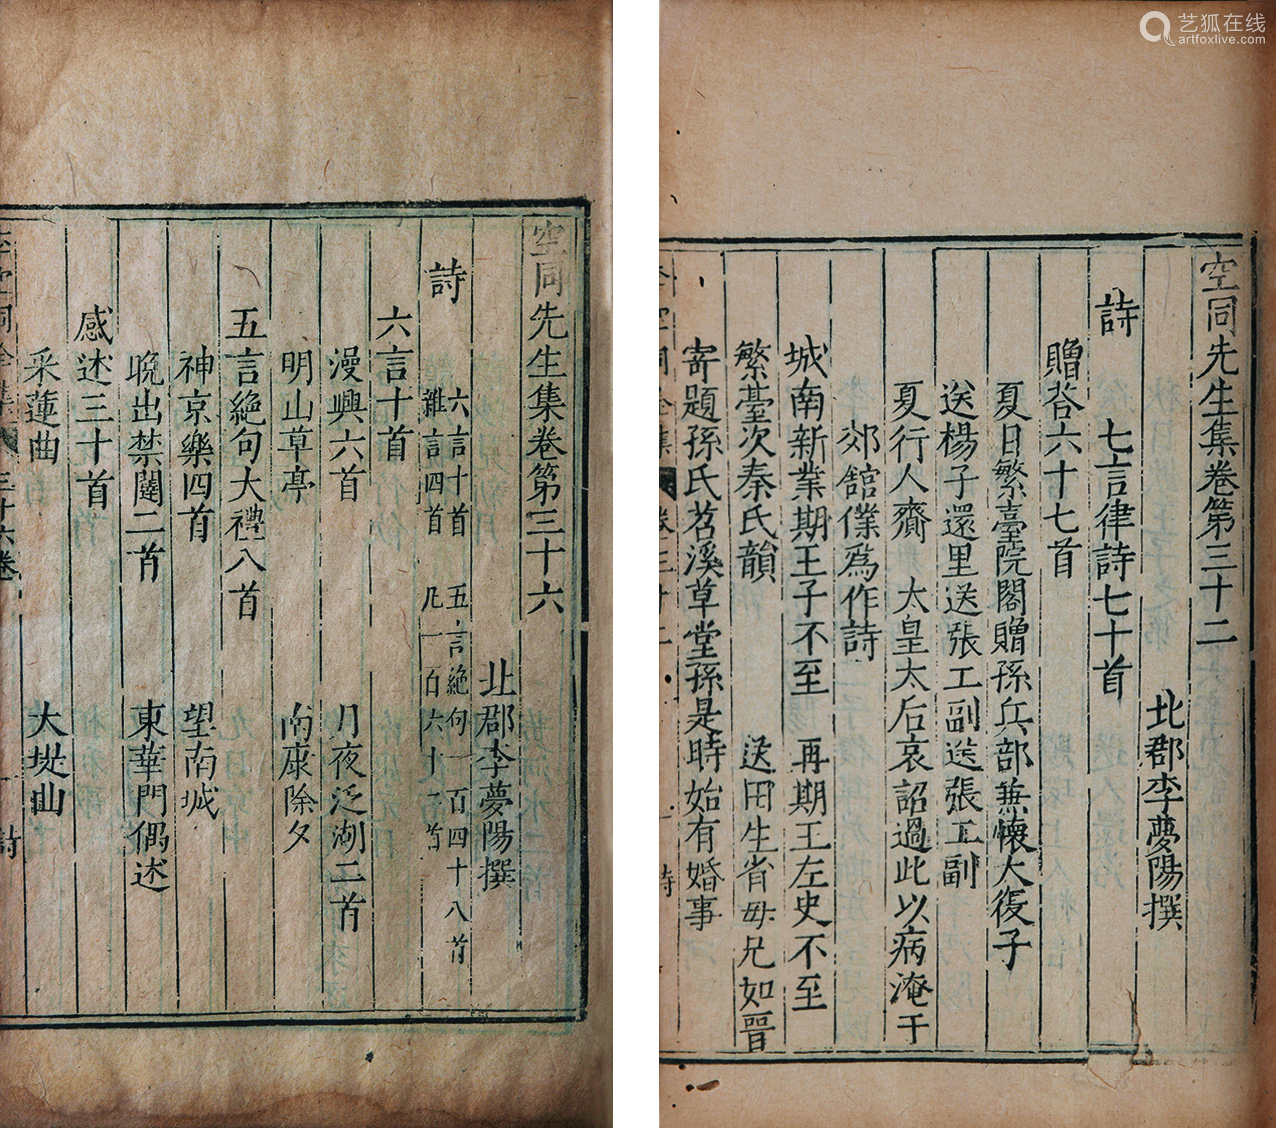 艺狐在线
artfoxlive.com
空同先生集卷第三十二
北郡李夢陽撰
詩 七言律詩七十首
贈荅六十七首
夏日繁臺院閣贈孫兵部兼懷大復子
送楊子還里送張工副送張工副
夏行人齋 太皇太后哀詔過此以病淹于
郊舘僕爲作詩
城南新業期王子不至 再期王左史不至
繁臺次秦氏韻 送田生省毋兄如晉
寄題孫氏苕溪草堂孫是時始有婚事
空同全集 卷三十二 一 詩
空同先生集卷第三十六
北郡李夢陽撰
詩 六言十首 五言絶句一百四十八首
雜言四首 凡一百六十二首
六言十首
漫興六首 月夜泛湖二首
明山草亭 南康除夕
五言絶句大禮八首
神京樂四首 望南城
晚出禁闥二首 東華門偶述
感述三十首
采蓮曲 大堤曲
李空同全集 三十六卷 一 詩